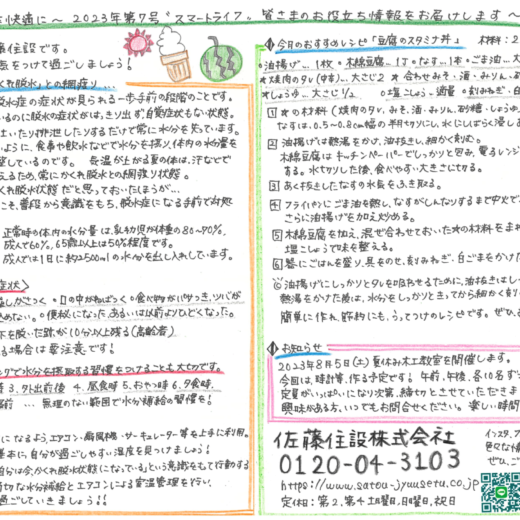 快適に～ 2023年第7号 "スマートライフ" 皆さまのお役立ち情報をお届けします～
藤住設です。
気をつけて過ごしましょう!
くれ脱水」との綱渡り...
脱水症の症状が見られる一歩手前の段階のことです。
いるのに脱水の症状が、はっきり出ず、自覚症状もない状態。
、たり排泄したりするだけで常に水分を失っています。
ように、食事や飲水などで水分を摂り、体内の水漫を
整しているのです。 気温が上がる夏の体は、汗などで
えるため、常にかくれ脱水との綱渡り状態。
くれ脱水状態だと思っておいたほうが...
こそ、普段から意識をもち、脱水症になる手前で対処
正常時の体内の水分量は、乳幼児が体重の80～90%、
成人で60%、65歳以上は50%程度です。
成人では1日に約2500mlの水分を出し入れしています。
症状>
唇がかさつく ○口の中がねばつく ○食べ物がパサつき、ツバが
めない。 ○便秘になった、あるいは以前よりひどくなった。
下を脱いだ跡が10分以上残る(高齢者)
る場合は要注意です!
グで水分を摂取する習慣をつけることも大切です。
3.外出前後 4.昼食時 5.おやつ時 6.夕食時、
寝前 ... 無理のない範囲で水分補給の習慣を!
になるよう、エアコン・扇風機・サーキュレーター等を上手に利用。
基本に、自分が過ごしやすい湿度を見つけましょう!
自分は今、かくれ脱水状態になっている」という意識をもて行動する
切な水分補給とエアコンによる室温管理を行い、
過ごしていきましょう!!
今月のおすすめレシピ「豆腐のスタミナ丼」 材料:2
○油揚げ...1枚 ○木綿豆腐...1丁 ○なす...1本 ○ごま油...大
★焼肉のタレ(中辛)...大さじ2 ★合わせみそ・酒・みりん、砂
★しょうゆ...大さじ1/2 ○塩こしょう...適量 ○刻みねぎ・白
1 ★の材料(焼肉のタレ、みそ、酒・みりん、砂糖・しょうゆ、
なすは、0.5～0.8cm幅の半月切りにし、水にしばらく浸しる
2 油揚げは熱湯をかけ、油抜きし、細かく刻む。
木綿豆腐はキッチンペーパーでしっかりと包み、電子レンジ
る。水切りした後、食べやすい大きさに切る。
3 あく抜きしたなすの水気をふき取る。
4 フライパンにごま油を熱し、なすがしんなりするまで中火で
さらに油揚げを加え炒める。
5 木綿豆腐を加え、混ぜ合わせておいた★の材料をまわ
塩こしょうで味を整える。
6 器にごはんを盛り、具をのせ、刻みねぎ、白ごまをかけた
油揚げにしっかりとタレを吸わせるために、油抜きはし
熱湯をかけた後は、水分をしっかりときってから細かく刻
簡単に作れ、節約にも、うってつけのレシピです。ぜひ、
お知らせ
2023年8月5日(土)夏休み木工教室を開催します。
今回は、時計等、作る予定です! 午前、午後、各10名ず
定員がいっぱいになり次第、締切とさせていただきま
興味がある方、いつでもお問合せください。楽しい時間
佐藤住設株式会社
0120-04-3103
https://www.satou-jyuusetu.co.jp
定休日:第2、第4土曜日、日曜日、祝日
インスタ、ア
色々な情
ぜひ